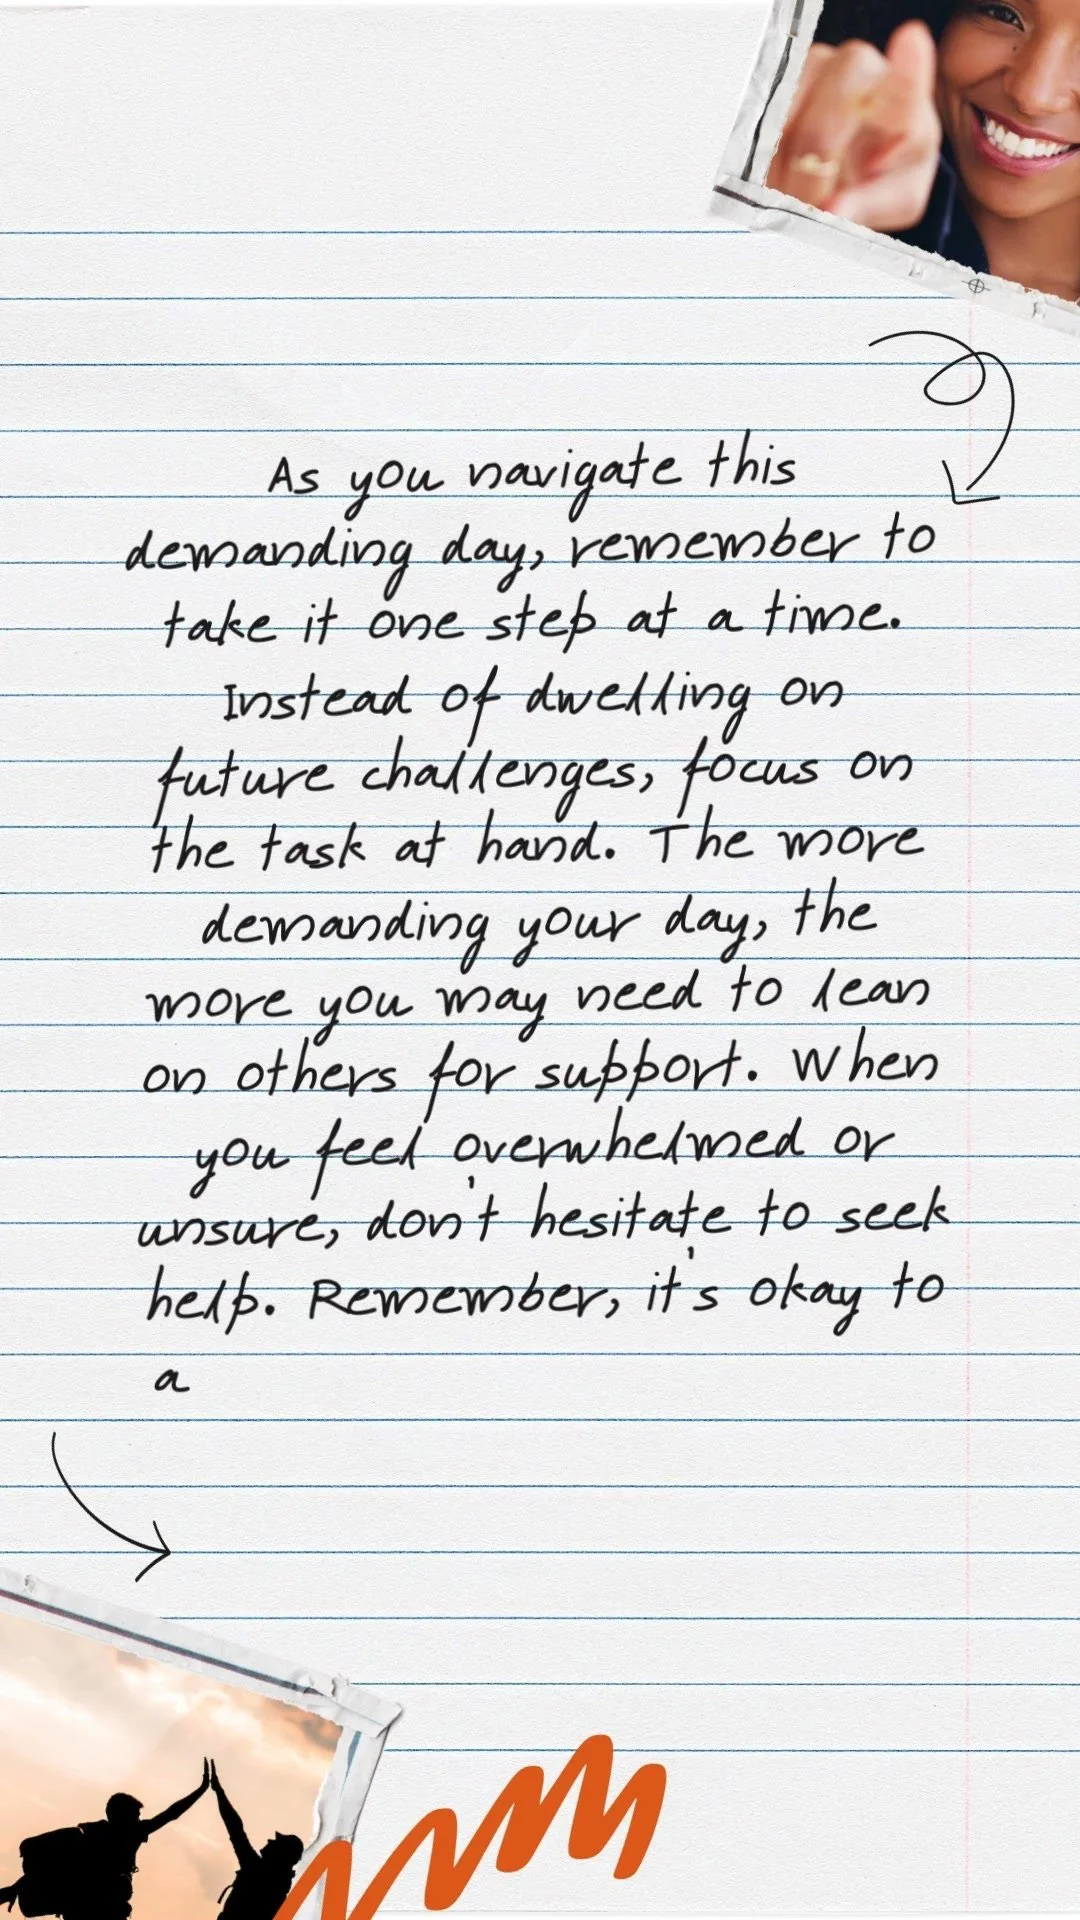 As you navigate this
demanding day, remember to
take it one step at a time.
Instead of dwelling on
future challenges, focus on
the task at hand. The more
demanding your day, the
more you may need to lean
on others for support. When
you feel overwhelmed or
unsure, don't hesitate to seek
help. Remember, it's okay to
a